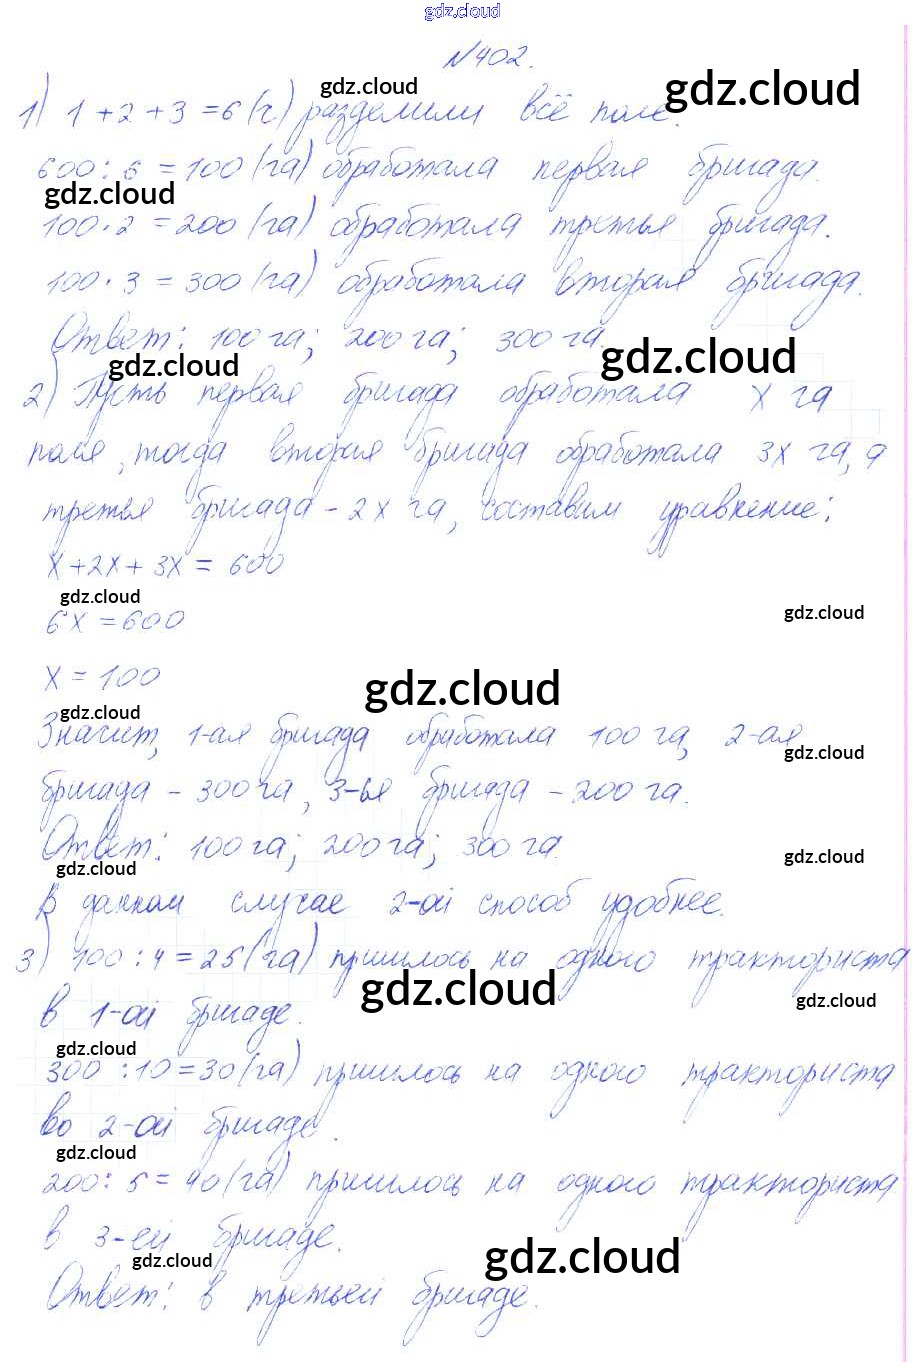 gdz.cloud
№402.
gdz.cloud gdz.cloud
1) 1 + 2 + 3 = 6 (ч) разделили всё поле.
600 : 6 = 100 (га) обработала первая бригада.
gdz.cloud
100 · 2 = 200 (га) обработала третья бригада.
100 · 3 = 300 (га) обработала вторая бригада.
Ответ: 100 га; 200 га; 300 га.
gdz.cloud gdz.cloud
2) Пусть первая бригада обработала x га
поля, тогда вторая бригада обработала 3x га, а
третья бригада - 2x га, составим уравнение:
x + 2x + 3x = 600
gdz.cloud gdz.cloud
6x = 600
x = 100
gdz.cloud
gdz.cloud
Значит, 1-ая бригада обработала 100 га, 2-ая
gdz.cloud
бригада - 300 га, 3-ья бригада - 200 га.
Ответ: 100 га; 200 га; 300 га.
gdz.cloud gdz.cloud
В данном случае 2-ой способ удобнее.
3) 100 : 4 = 25 (га) пришлось на одного тракториста
gdz.cloud gdz.cloud
в 1-ой бригаде.
gdz.cloud
300 : 10 = 30 (га) пришлось на одного тракториста
во 2-ой бригаде.
gdz.cloud
200 : 5 = 40 (га) пришлось на одного тракториста
в 3-ей бригаде.
gdz.cloud gdz.cloud
Ответ: в третьей бригаде.